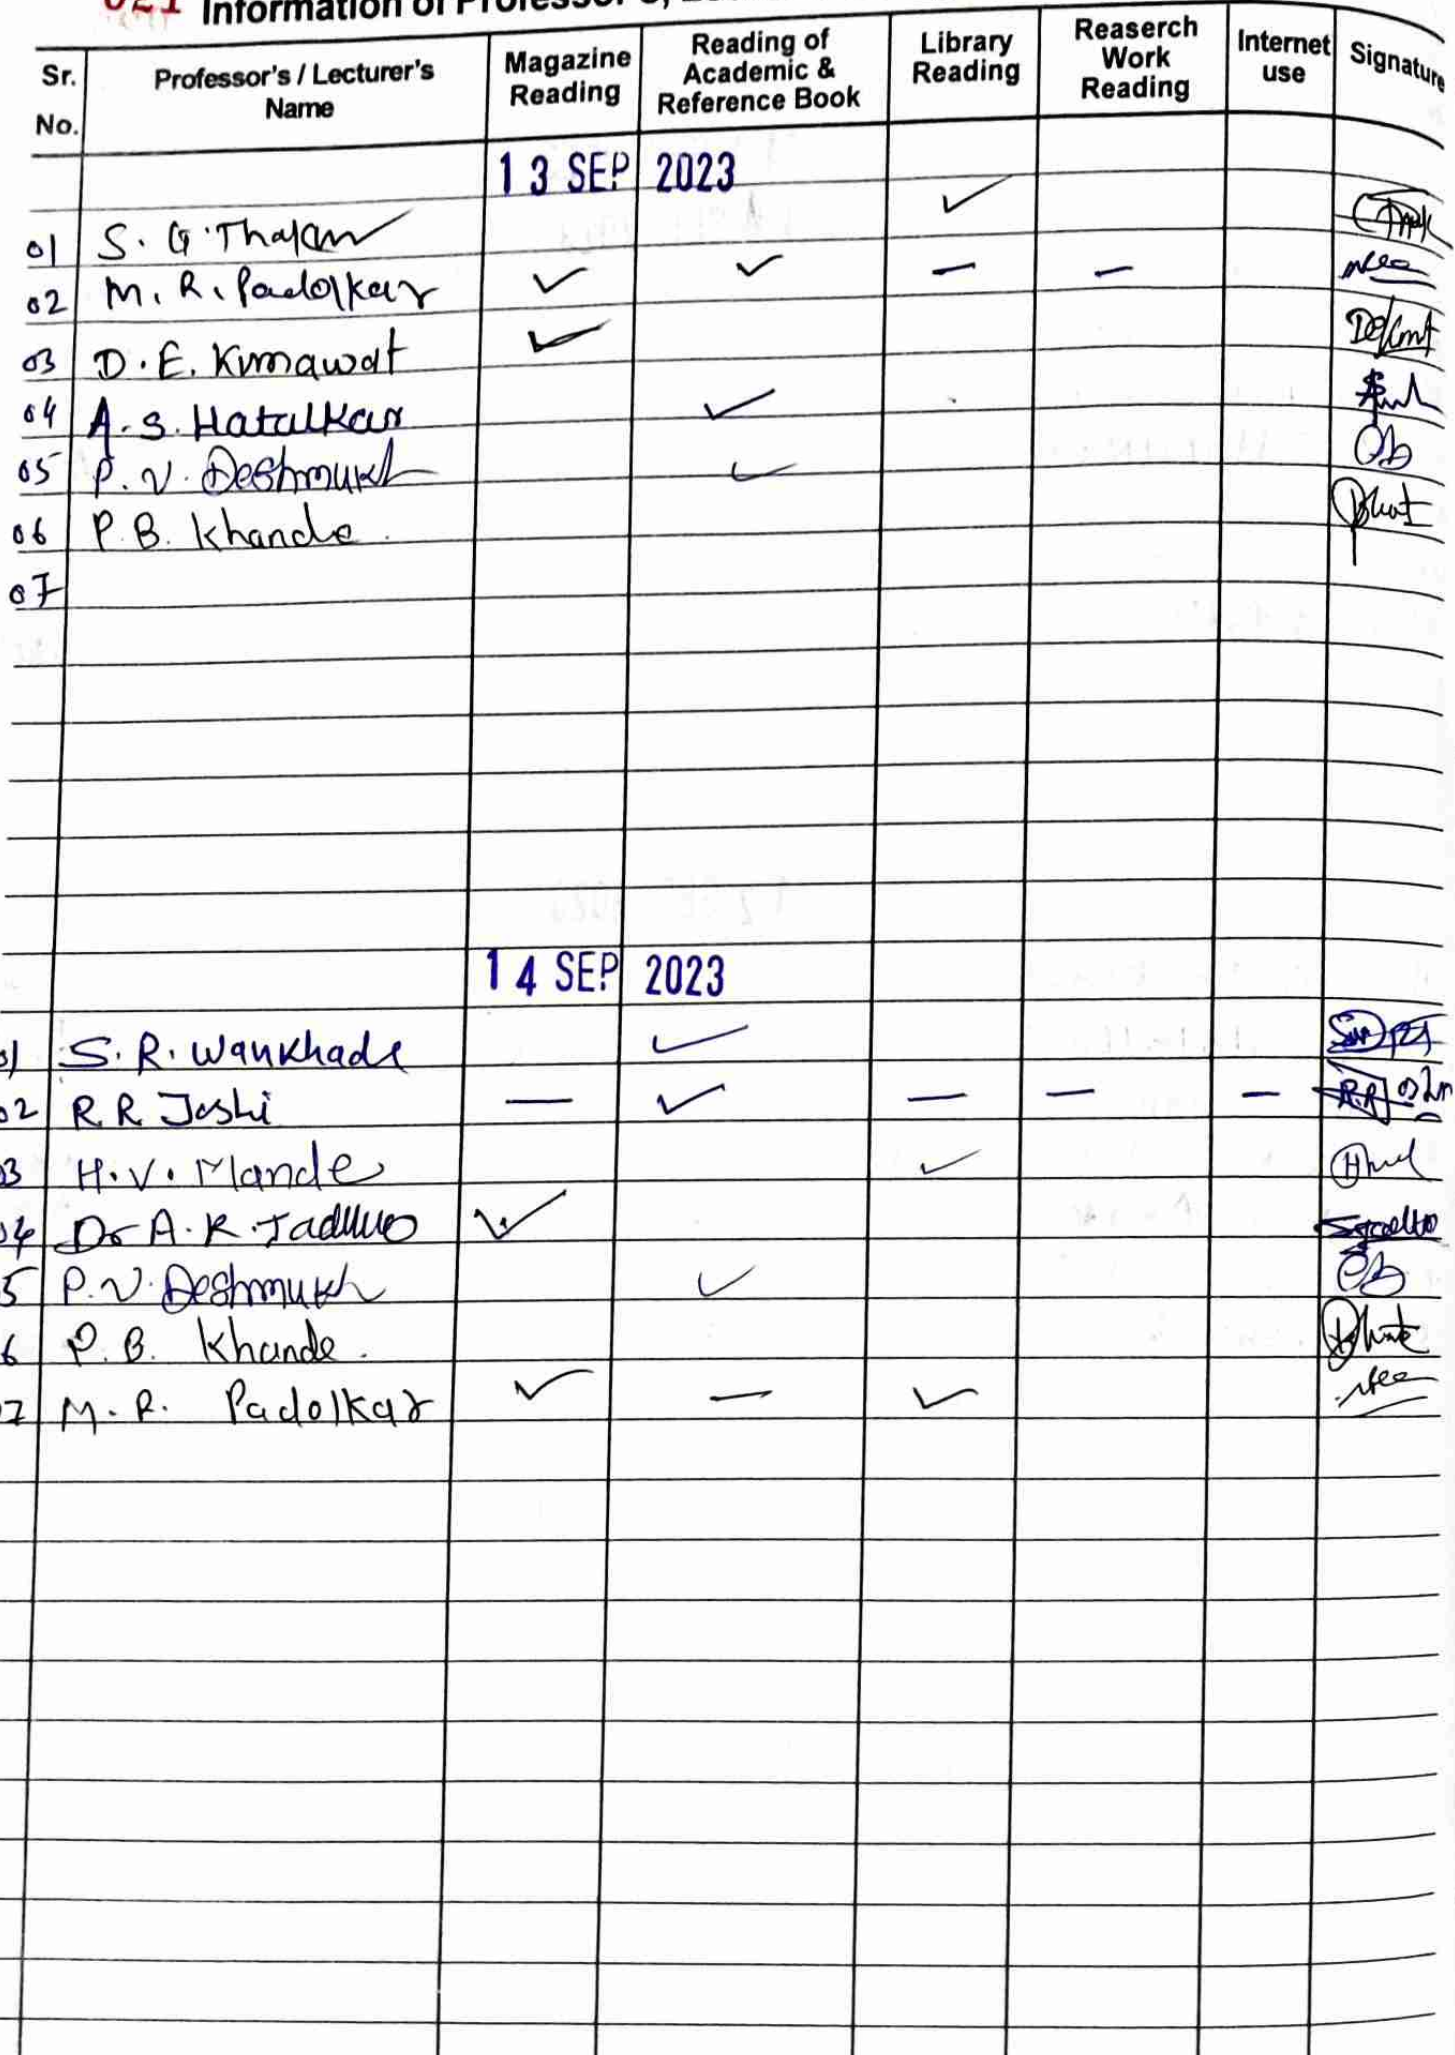 021 Information of Professor's,
Sr. No. Professor's / Lecturer's Name Magazine Reading Reading of Academic & Reference Book Library Reading Reaserch Work Reading Internet use Signature
13 SEP 2023
01 ✓
02 M. R. Padolkar ✓ ✓ — —
03 D. E. Kumawat ✓
04 A. S. Hatalkar ✓
05 P. V. Deshmukh ✓
06 P. B. Khande.
07
14 SEP 2023
01 S. R. Wankhade ✓
02 R R Joshi — ✓ — — —
03 H. V. Mande ✓
04 Dr A. K. ✓
5 P. V. Deshmukh ✓
6 P. B. Khande.
7 M. R. Padolkar ✓ — ✓